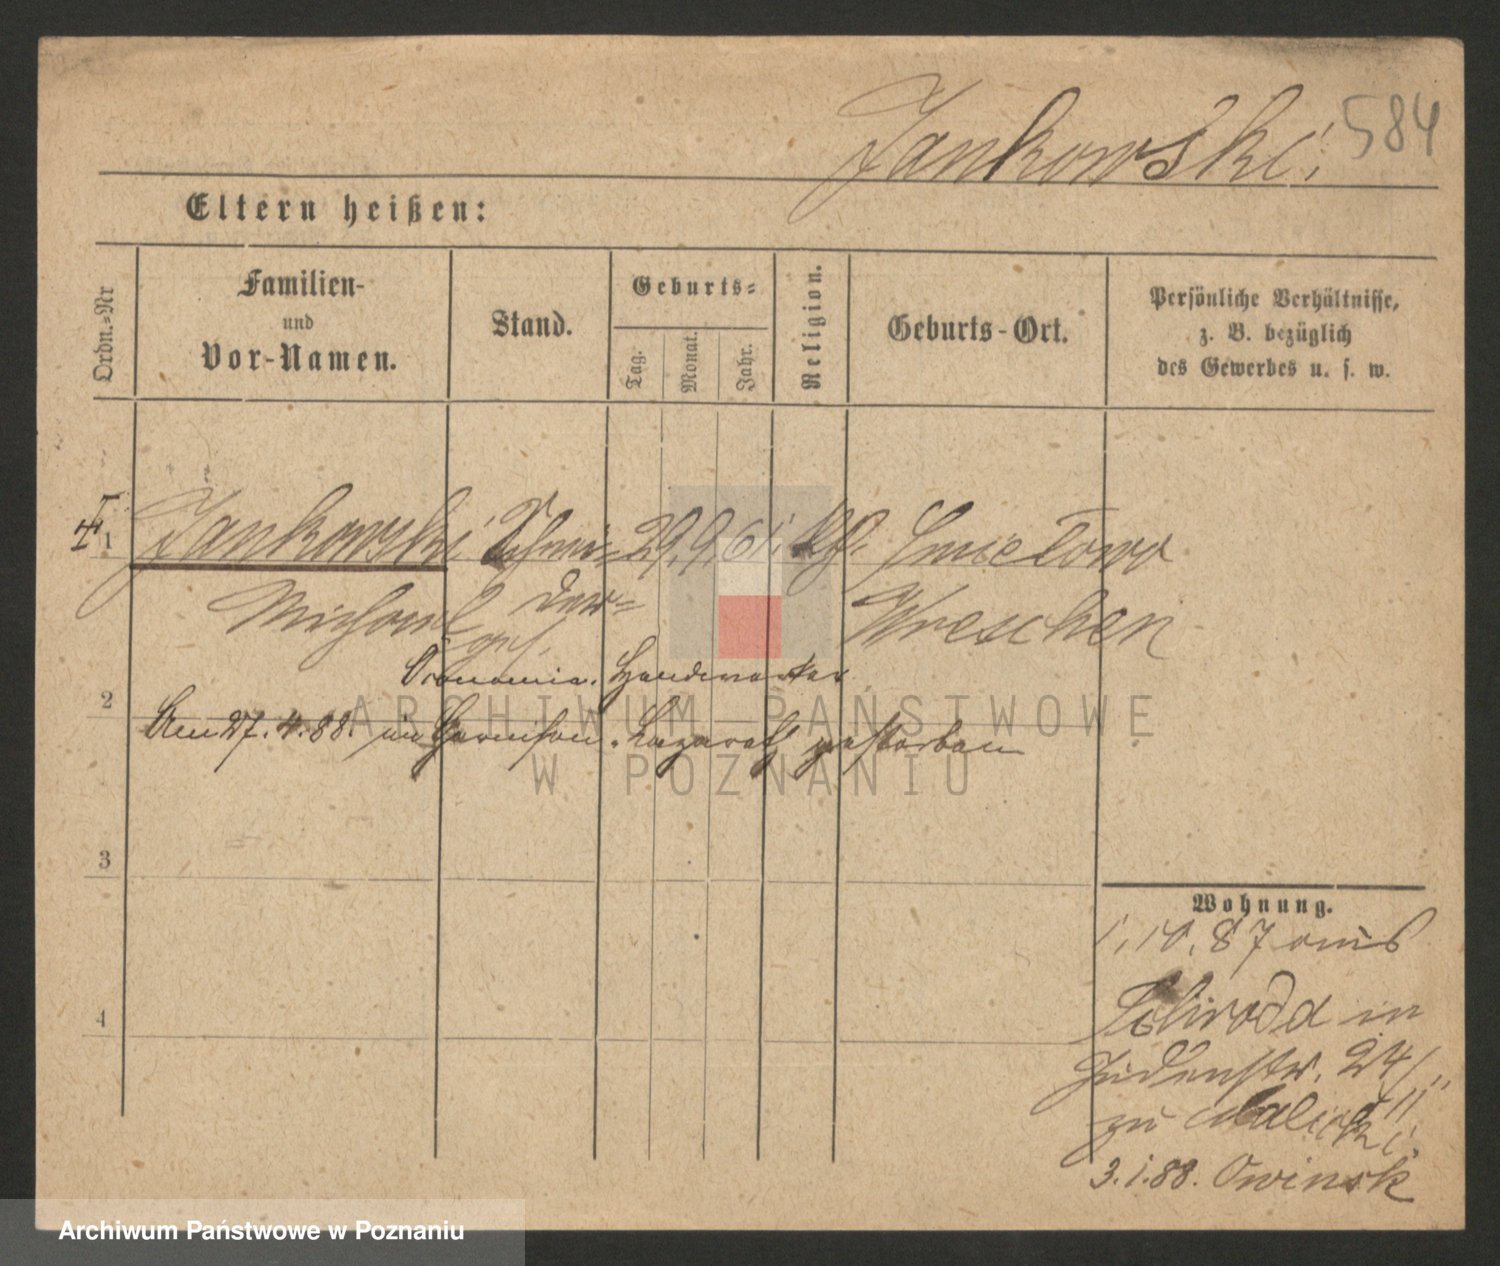 Jankowski.
584
Eltern heißen:
Ordn.-Nr
Familien-
und
Vor-Namen.
Stand.
Geburts-
Tag.
Monat.
Jahr.
Religion.
Geburts-Ort.
Persönliche Verhältnisse,
z. B. bezüglich
des Gewerbes u. s. w.
1
Jankowski Schnei- 29. 9. 61. Smielowo
Michael der- Wreschen
ges.
2
Oconomie. Handwerker
Am 27.4.88. im Garnison. Lazareth gestorben
3
4
Wohnung.
1.10.87 aus
in
Judenstr. 24/II
zu Malicki.
3.1.88. Owinsk
ARCHIWUM PAŃSTWOWE
W POZNANIU
Archiwum Państwowe w Poznaniu